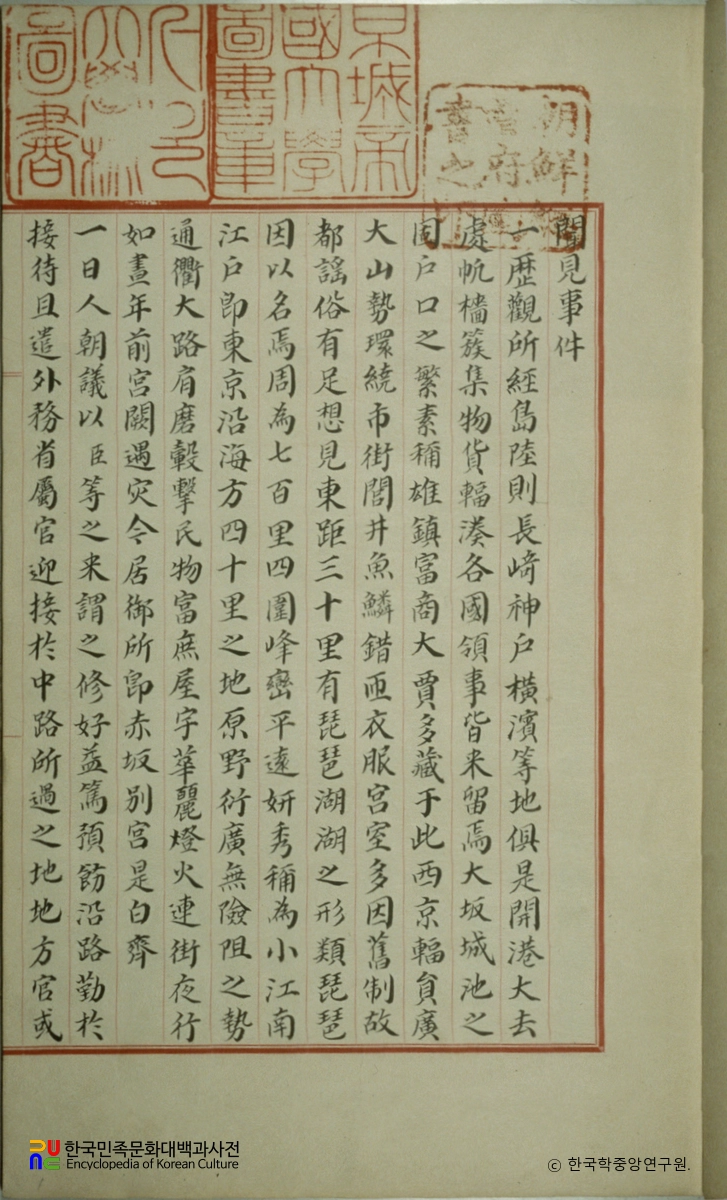 京城帝
國大學
圖書章
朝鮮
圖書
聞見事件
一歷觀所經島陸則長崎神戶橫濱等地俱是開港大去
處帆檣簇集物貨輻湊各國領事皆来留焉大坂城池之
固戶口之繁素稱雄鎮富商大賈多藏于此西京輻員廣
大山勢環繞市街閭井魚鱗錯匝衣服宮室多因舊制故
都謠俗有足想見東距三十里有琵琶湖湖之形類琵琶
因以名焉周為七百里四圍峰巒平遠妍秀稱為小江南
江戶卽東京沿海方四十里之地原野衍廣無險阻之勢
通衢大路肩磨轂擊民物富庶屋宇華麗燈火連街夜行
如晝年前宮闕遇灾今居御所卽赤坂別宮是白齊
一日人朝議以臣等之来謂之修好益篤預飭沿路勤於
接待且遣外務省屬官迎接於中路所過之地地方官或
한국민족문화대백과사전
Encyclopedia of Korean Culture
ⓒ 한국학중앙연구원.